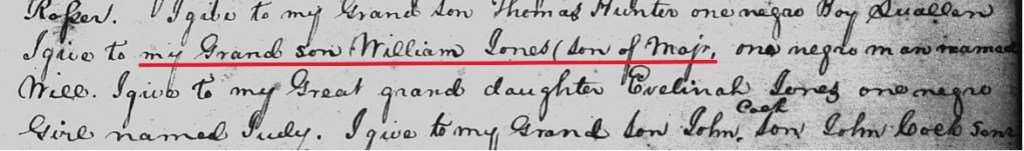 Roper. I give to my Grand son Thomas Hunter one negro Boy
I give to my Grand son William Jones (son of Majr, one negro man named
Will. I give to my Great grand daughter Evelinah Jones one negro
Girl named Judy. I give to my Grand Son John Cock Son John Cock Sonr